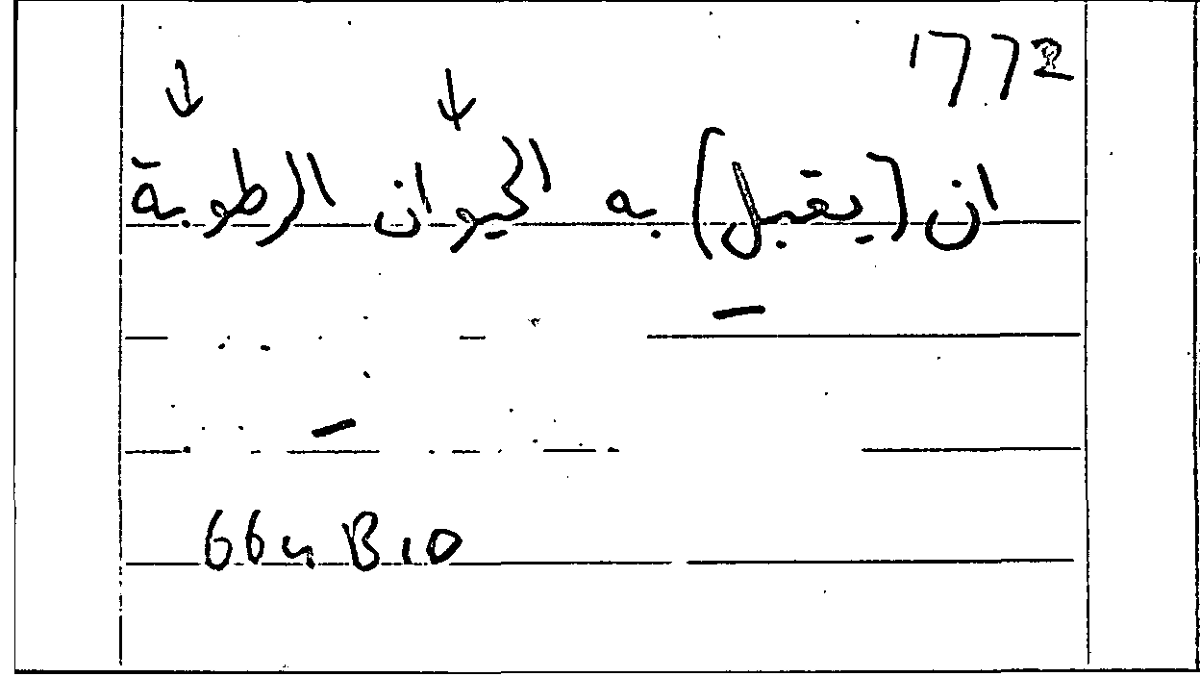 1772
ان (يقبل) به الحيوان الرطوبة
664 B10